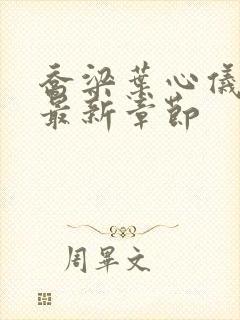 乔梁叶心仪
最新章节
周畢文